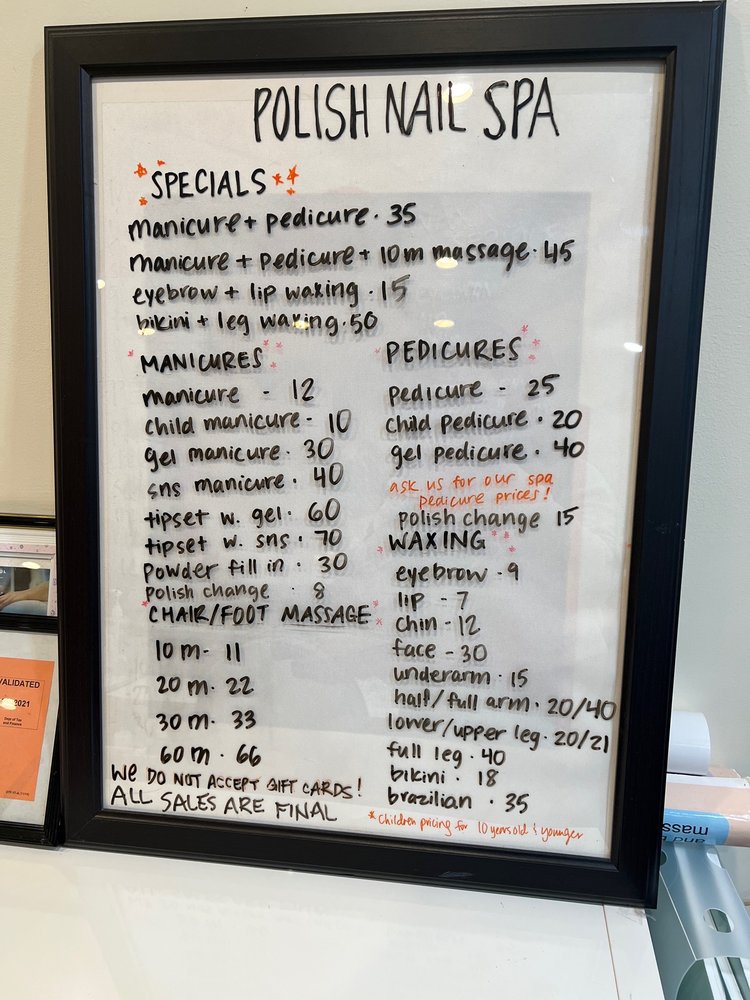 POLISH NAIL SPA
SPECIALS
manicure + pedicure · 35
manicure + pedicure + 10m massage · 45
eyebrow + lip waxing · 15
bikini + leg waxing · 50
MANICURES
manicure - 12
child manicure - 10
gel manicure · 30
sns manicure · 40
tipset w. gel · 60
tipset w. sns · 70
powder fill in · 30
polish change · 8
CHAIR/FOOT MASSAGE
10 m - 11
20 m · 22
30 m · 33
60 m · 66
WE DO NOT ACCEPT GIFT CARDS!
ALL SALES ARE FINAL
PEDICURES
pedicure - 25
child pedicure · 20
gel pedicure · 40
ask us for our spa
pedicure prices!
polish change 15
WAXING
eyebrow - 9
lip - 7
chin - 12
face - 30
underarm · 15
half/full arm · 20/40
lower/upper leg · 20/21
full leg · 40
bikini · 18
brazilian · 35
*children pricing for 10 years old & younger
VALIDATED
2021
Dept of Tax
and Finance
mass
and